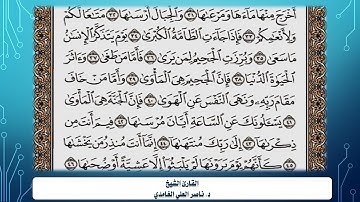 أَخْرَجَ مِنْهَا مَآءَهَا وَمَرْعَىٰهَا ٣١ وَٱلْجِبَالَ أَرْسَىٰهَا ٣٢ مَتَٰعًا لَّكُمْ
وَلِأَنْعَٰمِكُمْ ٣٣ فَإِذَا جَآءَتِ ٱلطَّآمَّةُ ٱلْكُبْرَىٰ ٣٤ يَوْمَ يَتَذَكَّرُ ٱلْإِنسَٰنُ
مَا سَعَىٰ ٣٥ وَبُرِّزَتِ ٱلْجَحِيمُ لِمَن يَرَىٰ ٣٦ فَأَمَّا مَن طَغَىٰ ٣٧ وَءَاثَرَ
ٱلْحَيَوٰةَ ٱلدُّنْيَا ٣٨ فَإِنَّ ٱلْجَحِيمَ هِىَ ٱلْمَأْوَىٰ ٣٩ وَأَمَّا مَنْ خَافَ
مَقَامَ رَبِّهِۦ وَنَهَى ٱلنَّفْسَ عَنِ ٱلْهَوَىٰ ٤٠ فَإِنَّ ٱلْجَنَّةَ هِىَ ٱلْمَأْوَىٰ ٤١
يَسْـَٔلُونَكَ عَنِ ٱلسَّاعَةِ أَيَّانَ مُرْسَىٰهَا ٤٢ فِيمَ أَنتَ مِن
ذِكْرَىٰهَآ ٤٣ إِلَىٰ رَبِّكَ مُنتَهَىٰهَآ ٤٤ إِنَّمَآ أَنتَ مُنذِرُ مَن يَخْشَىٰهَا
٤٥ كَأَنَّهُمْ يَوْمَ يَرَوْنَهَا لَمْ يَلْبَثُوٓا۟ إِلَّا عَشِيَّةً أَوْ ضُحَىٰهَا ٤٦
القارئ الشيخ
د. ناصر العلي الغامدي